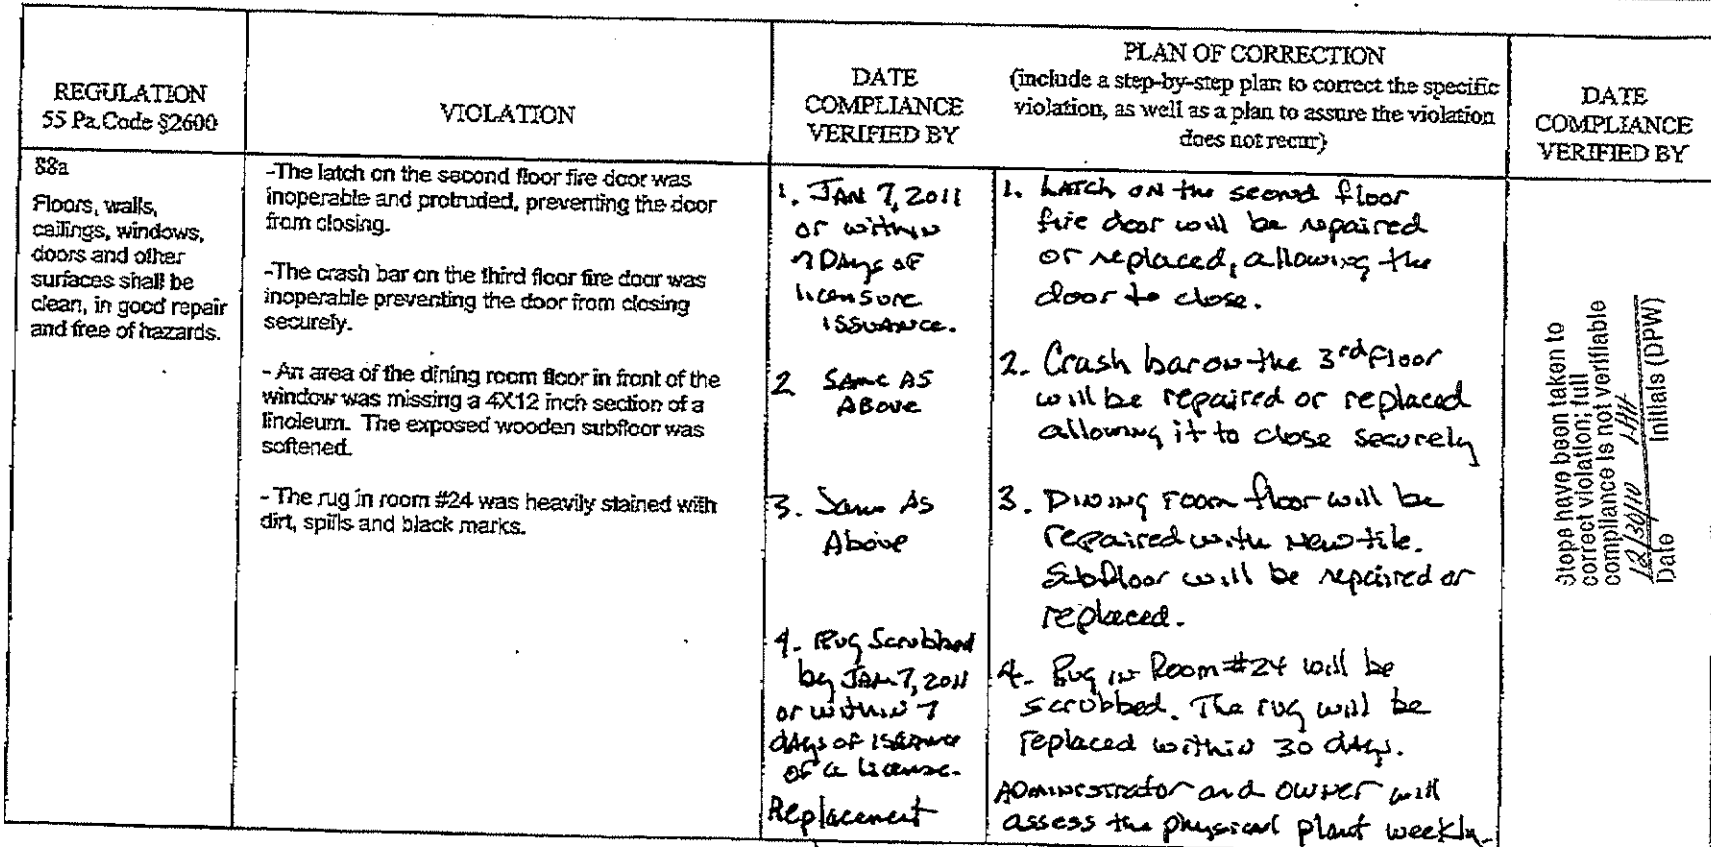 REGULATION
55 Pa.Code §2600
VIOLATION
DATE
COMPLIANCE
VERIFIED BY
PLAN OF CORRECTION
(include a step-by-step plan to correct the specific
violation, as well as a plan to assure the violation
does not recur)
DATE
COMPLIANCE
VERIFIED BY
88a
Floors, walls,
ceilings, windows,
doors and other
surfaces shall be
clean, in good repair
and free of hazards.
-The latch on the second floor fire door was
inoperable and protruded, preventing the door
from closing.
-The crash bar on the third floor fire door was
inoperable preventing the door from closing
securely.
- An area of the dining room floor in front of the
window was missing a 4X12 inch section of a
linoleum. The exposed wooden subfloor was
softened.
- The rug in room #24 was heavily stained with
dirt, spills and black marks.
1. JAN 7, 2011
or within
7 DAys of
licensure
ISSUANCE.
2 SAme AS
ABove
3. Same As
Above
4. Rug Scrubbed
by JAN 7, 2011
or within 7
dAys of issuance
of a license.
Replacement
1. LATCH ON the second floor
fire door will be repaired
or replaced, allowing the
door to close.
2. Crash bar on the 3rd floor
will be repaired or replaced
allowing it to close securely
3. Dining room floor will be
repaired with New tile.
Subfloor will be repaired or
replaced.
4. Rug in Room #24 will be
scrubbed. The rug will be
replaced within 30 dAys.
ADministrator and owner will
assess the physical plant weekly.
Steps have been taken to
correct violation; full
compliance is not verifiable
12/30/10
Date Initials (DPW)